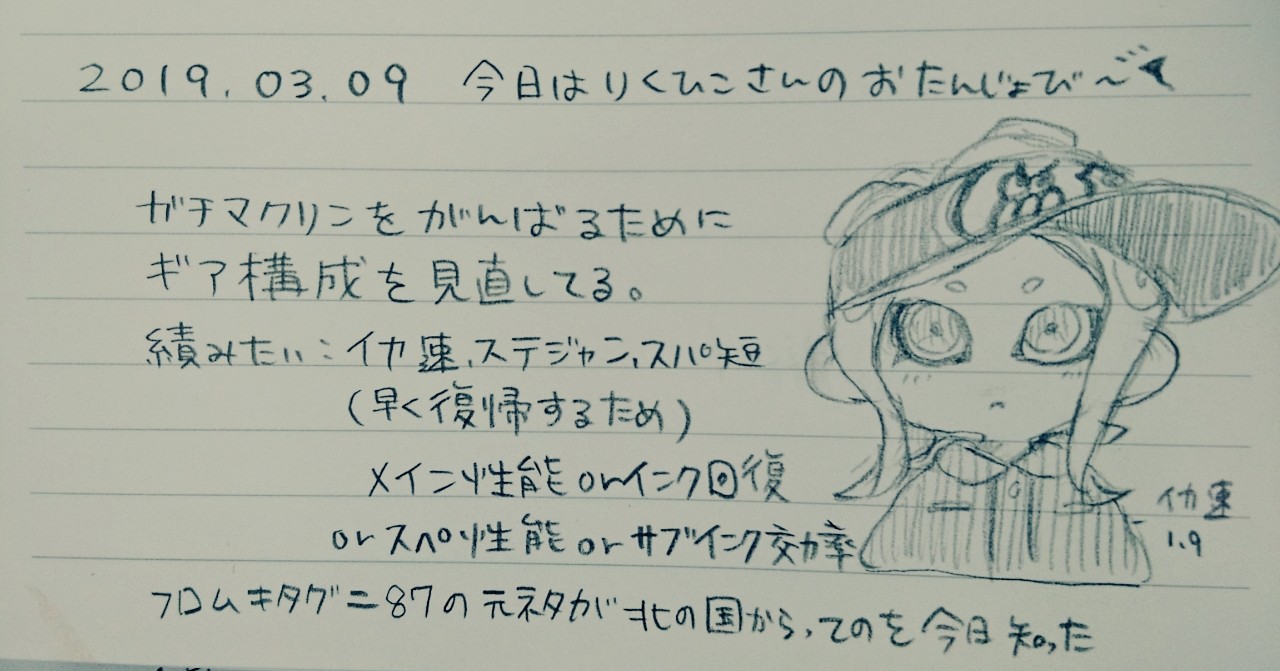 2019.03.09 今日はりくひこさんのおたんじょび〜
ガチマクリンをがんばるために
ギア構成を見直してる。
積みたい:イカ速、ステジャン、スパ短
(早く復帰するため)
メイン性能orインク回復
orスペ性能orサブインク効率
イカ速
1.9
フロムキタグニ87の元ネタが北の国から、てのを今日知った